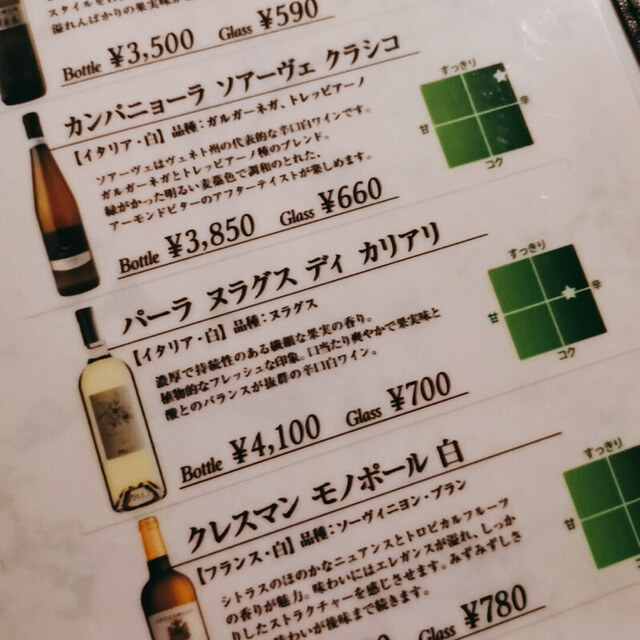 Bottle ¥3,500 Glass ¥590
カンパニョーラ ソアーヴェ クラシコ
【イタリア・白】品種：ガルガーネガ、トレッビアーノ
ソアーヴェはヴェネト州の代表的な辛口白ワインです。
ガルガーネガとトレッビアーノ種のブレンド。
緑がかった明るい麦藁色で調和のとれた、
アーモンドビターのアフターテイストが楽しめます。
Bottle ¥3,850 Glass ¥660
すっきり
甘 辛
コク
パーラ ヌラグス ディ カリアリ
【イタリア・白】品種：ヌラグス
濃厚で持続性のある繊細な果実の香り。
植物的なフレッシュな印象。口当たり爽やかで果実味と
酸とのバランスが抜群の辛口白ワイン。
Bottle ¥4,100 Glass ¥700
すっきり
甘 辛
コク
クレスマン モノポール 白
【フランス・白】品種：ソーヴィニヨン・ブラン
シトラスのほのかなニュアンスとトロピカルフルーツ
の香りが魅力。味わいにはエレガンスが溢れ、しっか
りしたストラクチャーを感じさせます。みずみずしさ
味わいが後味まで続きます。
Glass ¥780
すっきり
甘